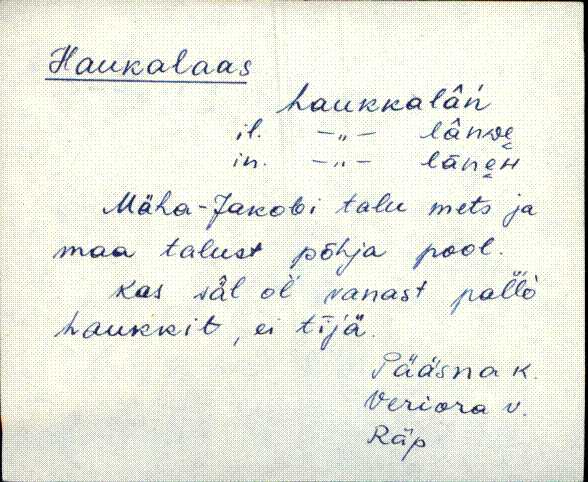 Haukalaas
haukkalâń
il. —„— lânde̮
in. —„— lāne̮н
Mäha-Jakobi talu mets ja
maa talust põhja pool.
Kas säl oĺ vanast pallò
haukkit, ei tījä.
Pääsna k.
Veriora v.
Räp